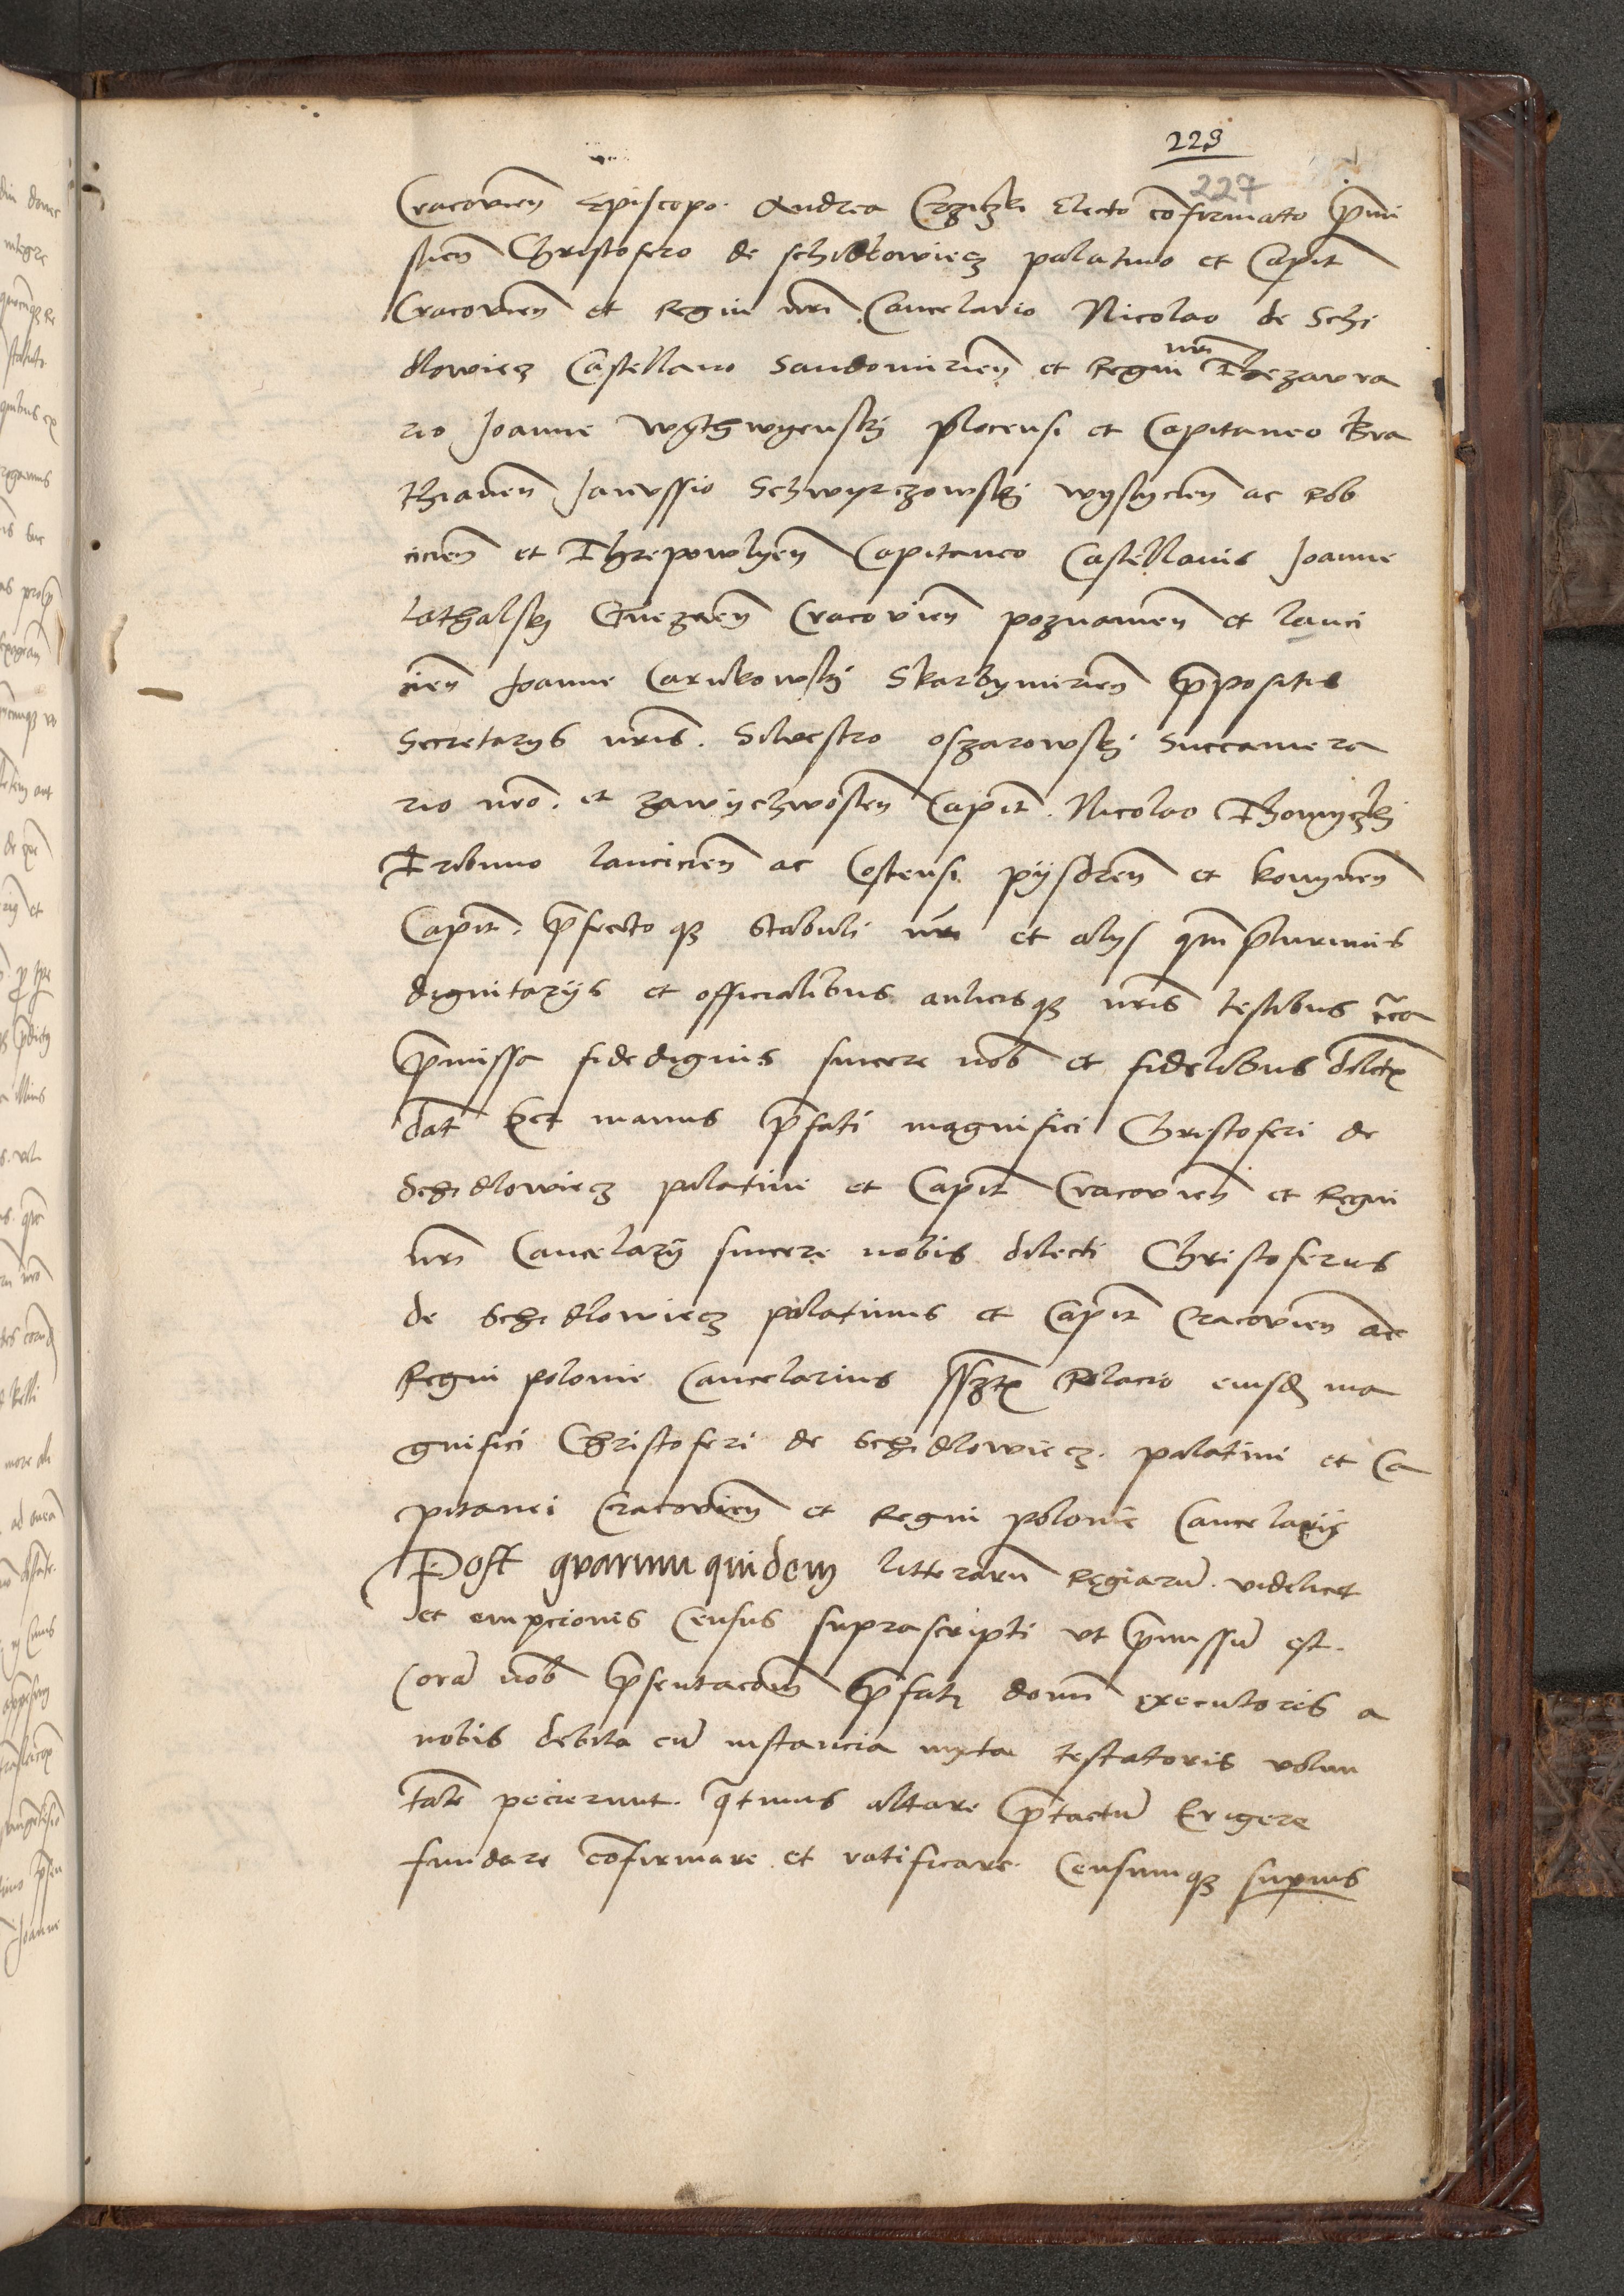 229
227
Cracovien̄ Episcopo. Andrea Crziczki Electo cōfirmato p̄mi
slien̄ Christofero de schidlowiecz palatino et Capit̄
Cracovien̄ et Regni nr̄i Cancelario Nicolao de Schi
dlowiecz Castellano Sandomirien̄ et Regni nr̄i Thezavra
rio Joanne wythwyensky plocensi et Capitaneo Bra
thianen̄ Janvssio Schwyrczowsky wyslycien̄ ac Rob
cicien̄ et Threpowlyen̄ Capitaneo Castellanis Joanne
Lathalsky Gnezn̄en̄ Cracovien̄ poznanien̄ et lanci
cien̄ Joanne Carnkowsky Skarbymirien̄ p̄positis
Secretarys nr̄is. Silvestro oszarowsky Succamera
rio nr̄o. et zawychwosten̄ Capit̄. Nicolao Thomyczky
Tribuno lancicien̄ ac Costensi. pysdren̄ et konynen̄
Capit̄. p̄fectoqꝫ Stabuli nr̄i et alys qm̄plurimis
dignitarÿs et officialibus aulicisqꝫ nr̄is testibus cīca
p̄missa fidedignis sincere nob̄ et fidelibus dilctꝭ
dat̄ per manus p̄fati magnifici Christoferi de
Schidlowiecz palatini et Capit̄ Cracovien̄ et Regni
nr̄i Cancelarÿ sincere nobis dilecti Christoferus
de Schidlowiecz palatinus et Capit̄ Cracovien̄ ac
Regni polonie Cancelarius sszꝭ Relacio eiusd̄ ma
gnifici Christoferi de Schidlowiecz. palatini et Ca
pitanei Cracovien̄ et Regni polonie Cancelarÿ
Post quarum quidem litterarū Regiarū. videlicet
et empcionis Census suprascripti vt p̄missū est.
Corā nob̄ p̄sentacōem̄ p̄fati domī executoris a
nobis debita cū instancia iuxta testatoris volun
tatē pecierunt. q̄tinus altare p̄tactū Erigere
fundare cōfirmare et ratificare Censumqꝫ supius